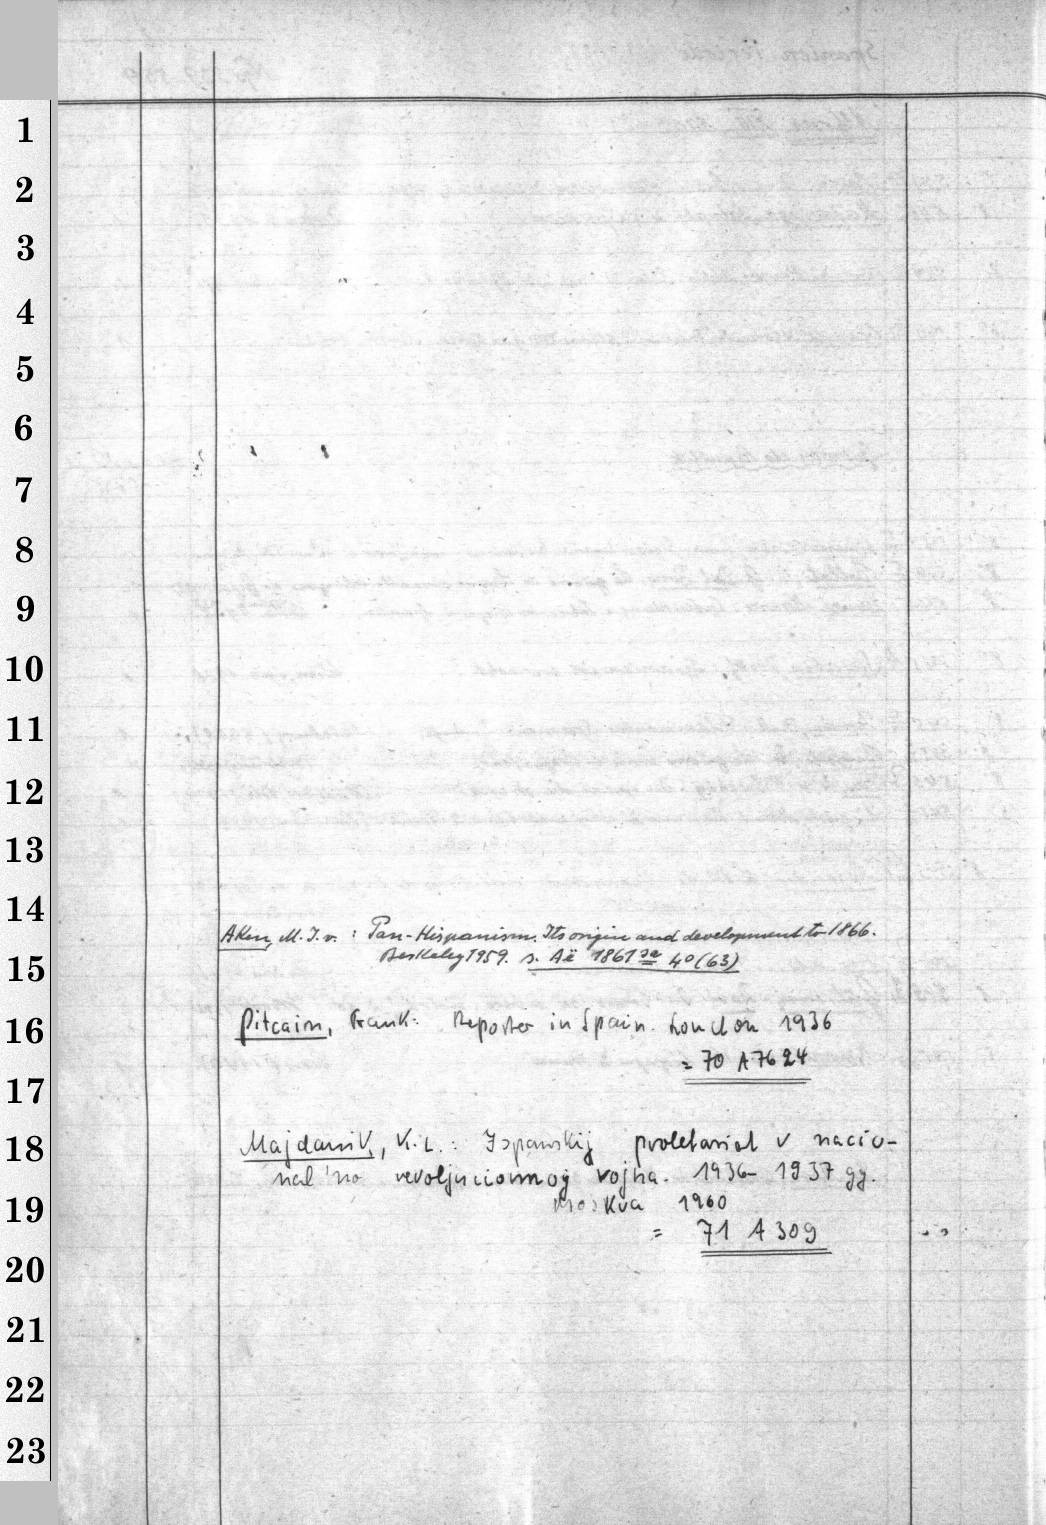 1
2
3
4
5
6
7
8
9
10
11
12
13
14
Aken, M. J. v. : Pan-Hispanism. Its origin and development to 1866.
Berkeley 1959. s. Aë 1861 40 (63)
15
Pitcairn, Frank: Reporter in Spain. London 1936
16
= 70 A 7624
17
Majdanik, K. L.: Ispanskij proletariat v nacio-
18
nal'no revoljucionnoj vojna. 1936-1937 gg.
Moskva 1960
19
= 71 A 309
20
21
22
23